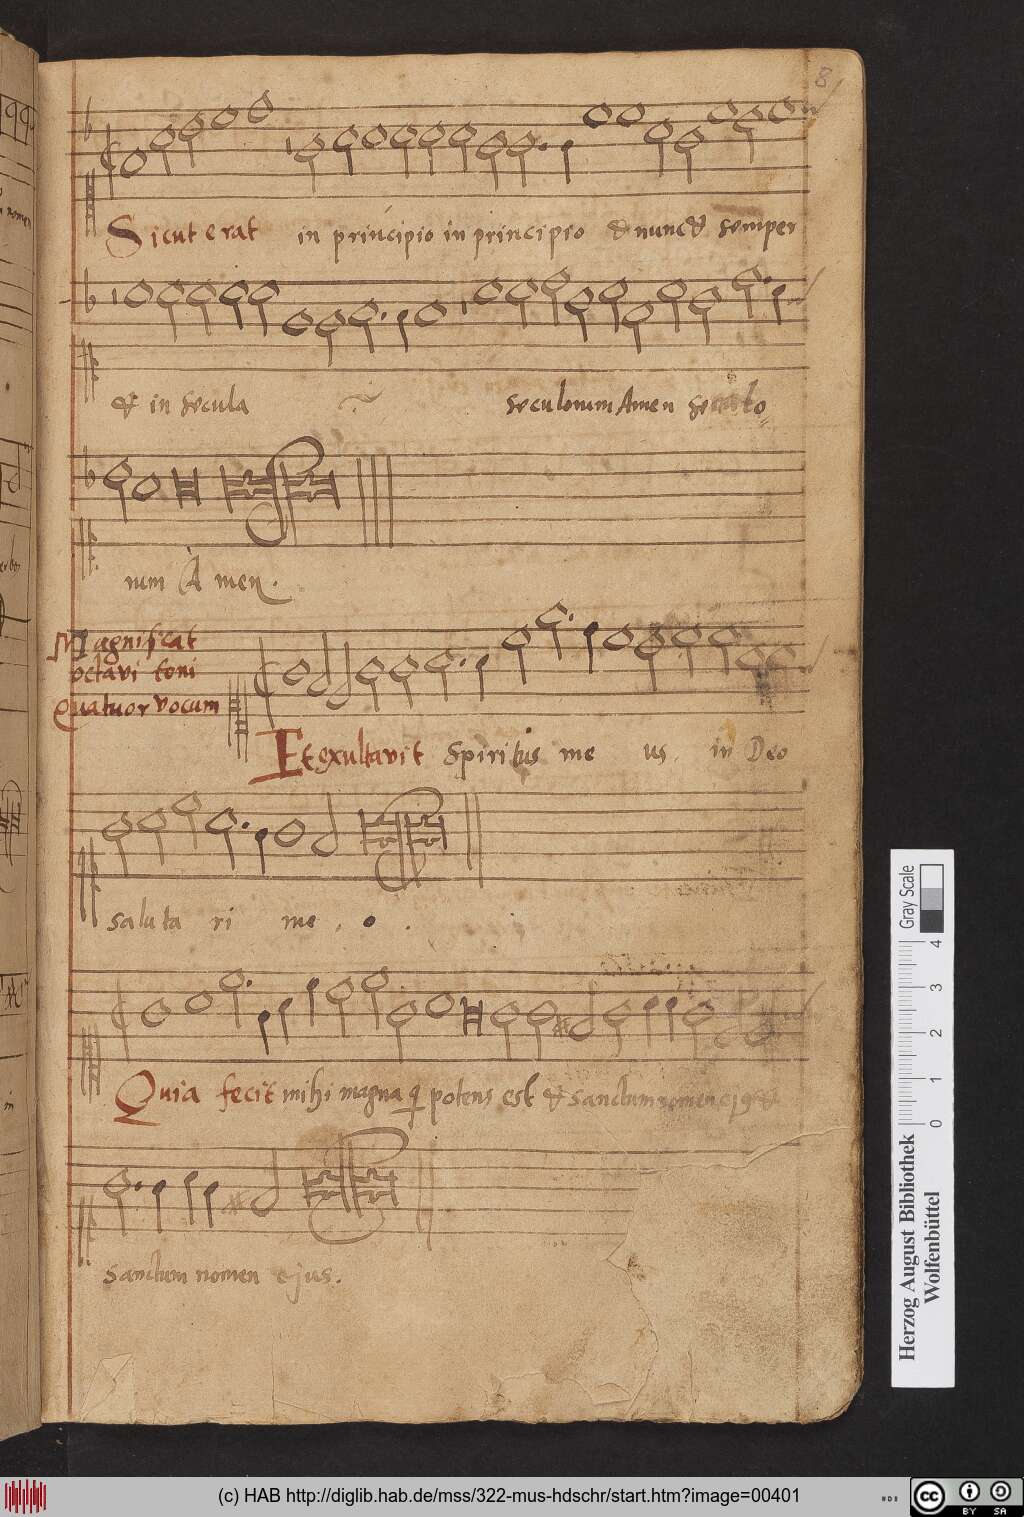 8
Sicut erat in principio in principio & nunc & semper
& in secula seculorum Amen seculo
rum Amen.
Magnificat
octavi toni
Quatuor vocum
Et exultavit Spiritus me us. in Deo
Saluta ri me . o .
Quia fecit mihi magna q potens est & sanctum nomen ej9 &
Sanctum nomen ejus.
Gray Scale
4
3
2
1
0
Herzog August Bibliothek
Wolfenbüttel
(c) HAB http://diglib.hab.de/mss/322-mus-hdschr/start.htm?image=00401
cc
BY SA